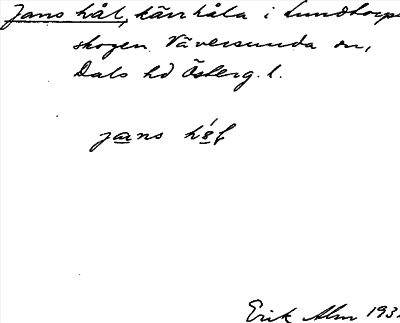 Jans hål, kärrhåla i Lundtorps
skogen Väversunda sn,
Dals hd Österg. l.
jans
Erik Alm 193